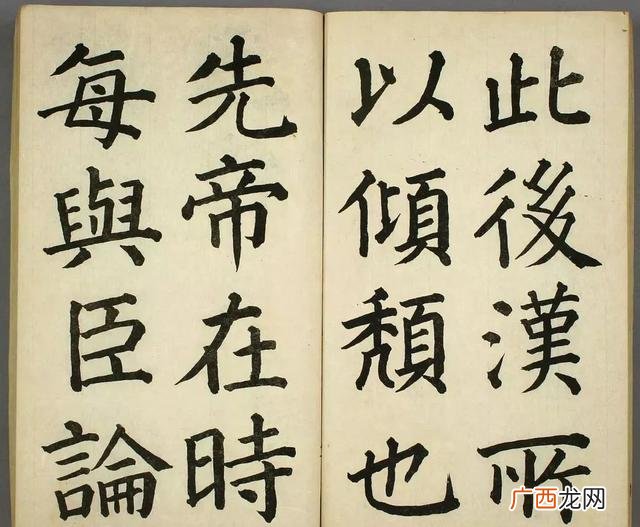 此後漢所
以傾頹也
先帝在時
每與臣論
广西龙网